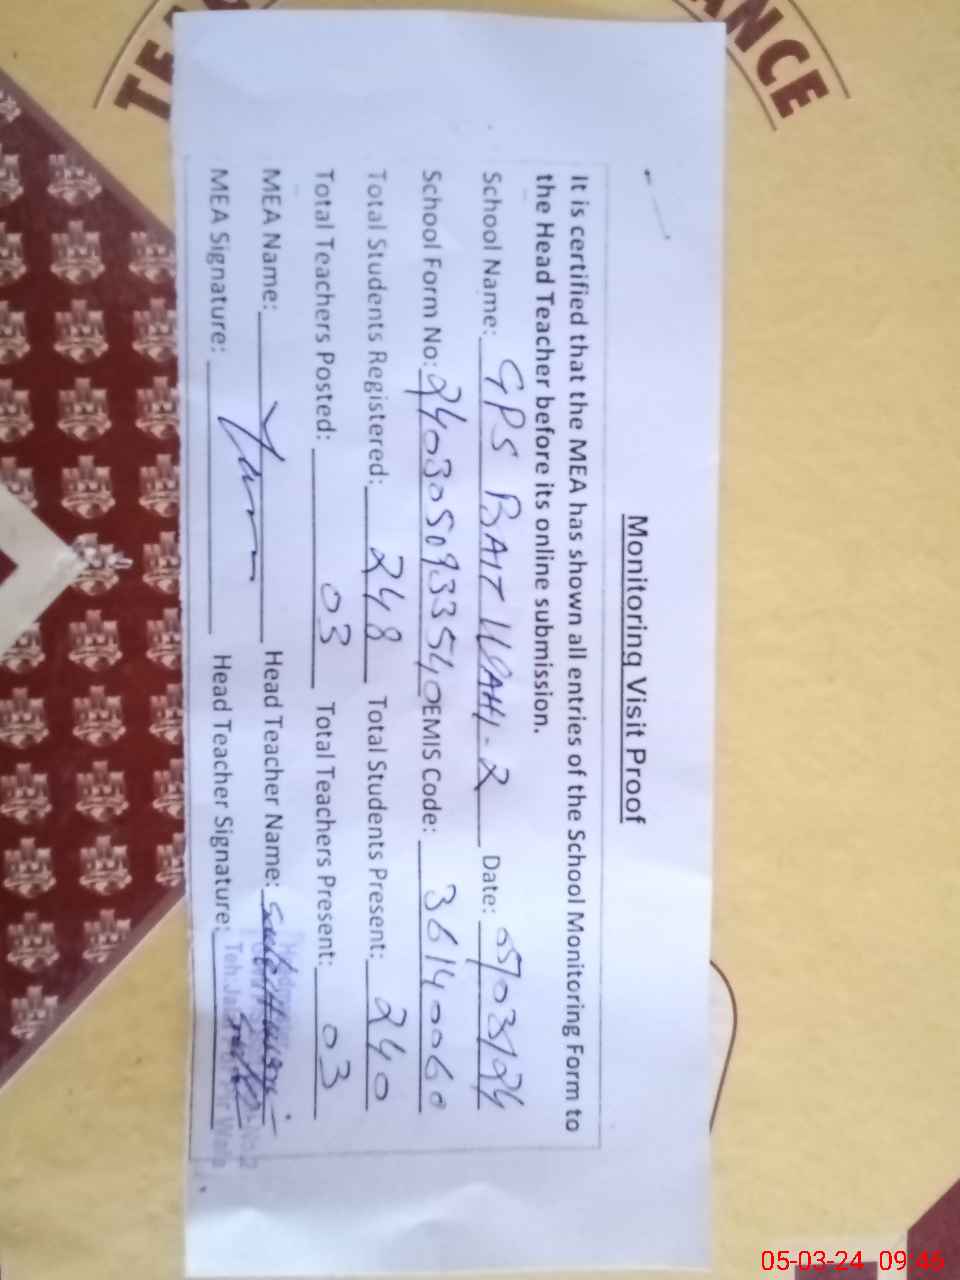 Monitoring Visit Proof
It is certified that the MEA has shown all entries of the School Monitoring Form to
the Head Teacher before its online submission.
School Name: GPS BAIT WAHI-2 Date: 05/03/24
School Form No: 2403050933540 EMIS Code: 36140060
Total Students Registered: 248 Total Students Present: 240
Total Teachers Posted: 03 Total Teachers Present: 03
MEA Name: Head Teacher Name:
MEA Signature: Head Teacher Signature:
Teh. Pir Wala
ANCE
05-03-24 09:46